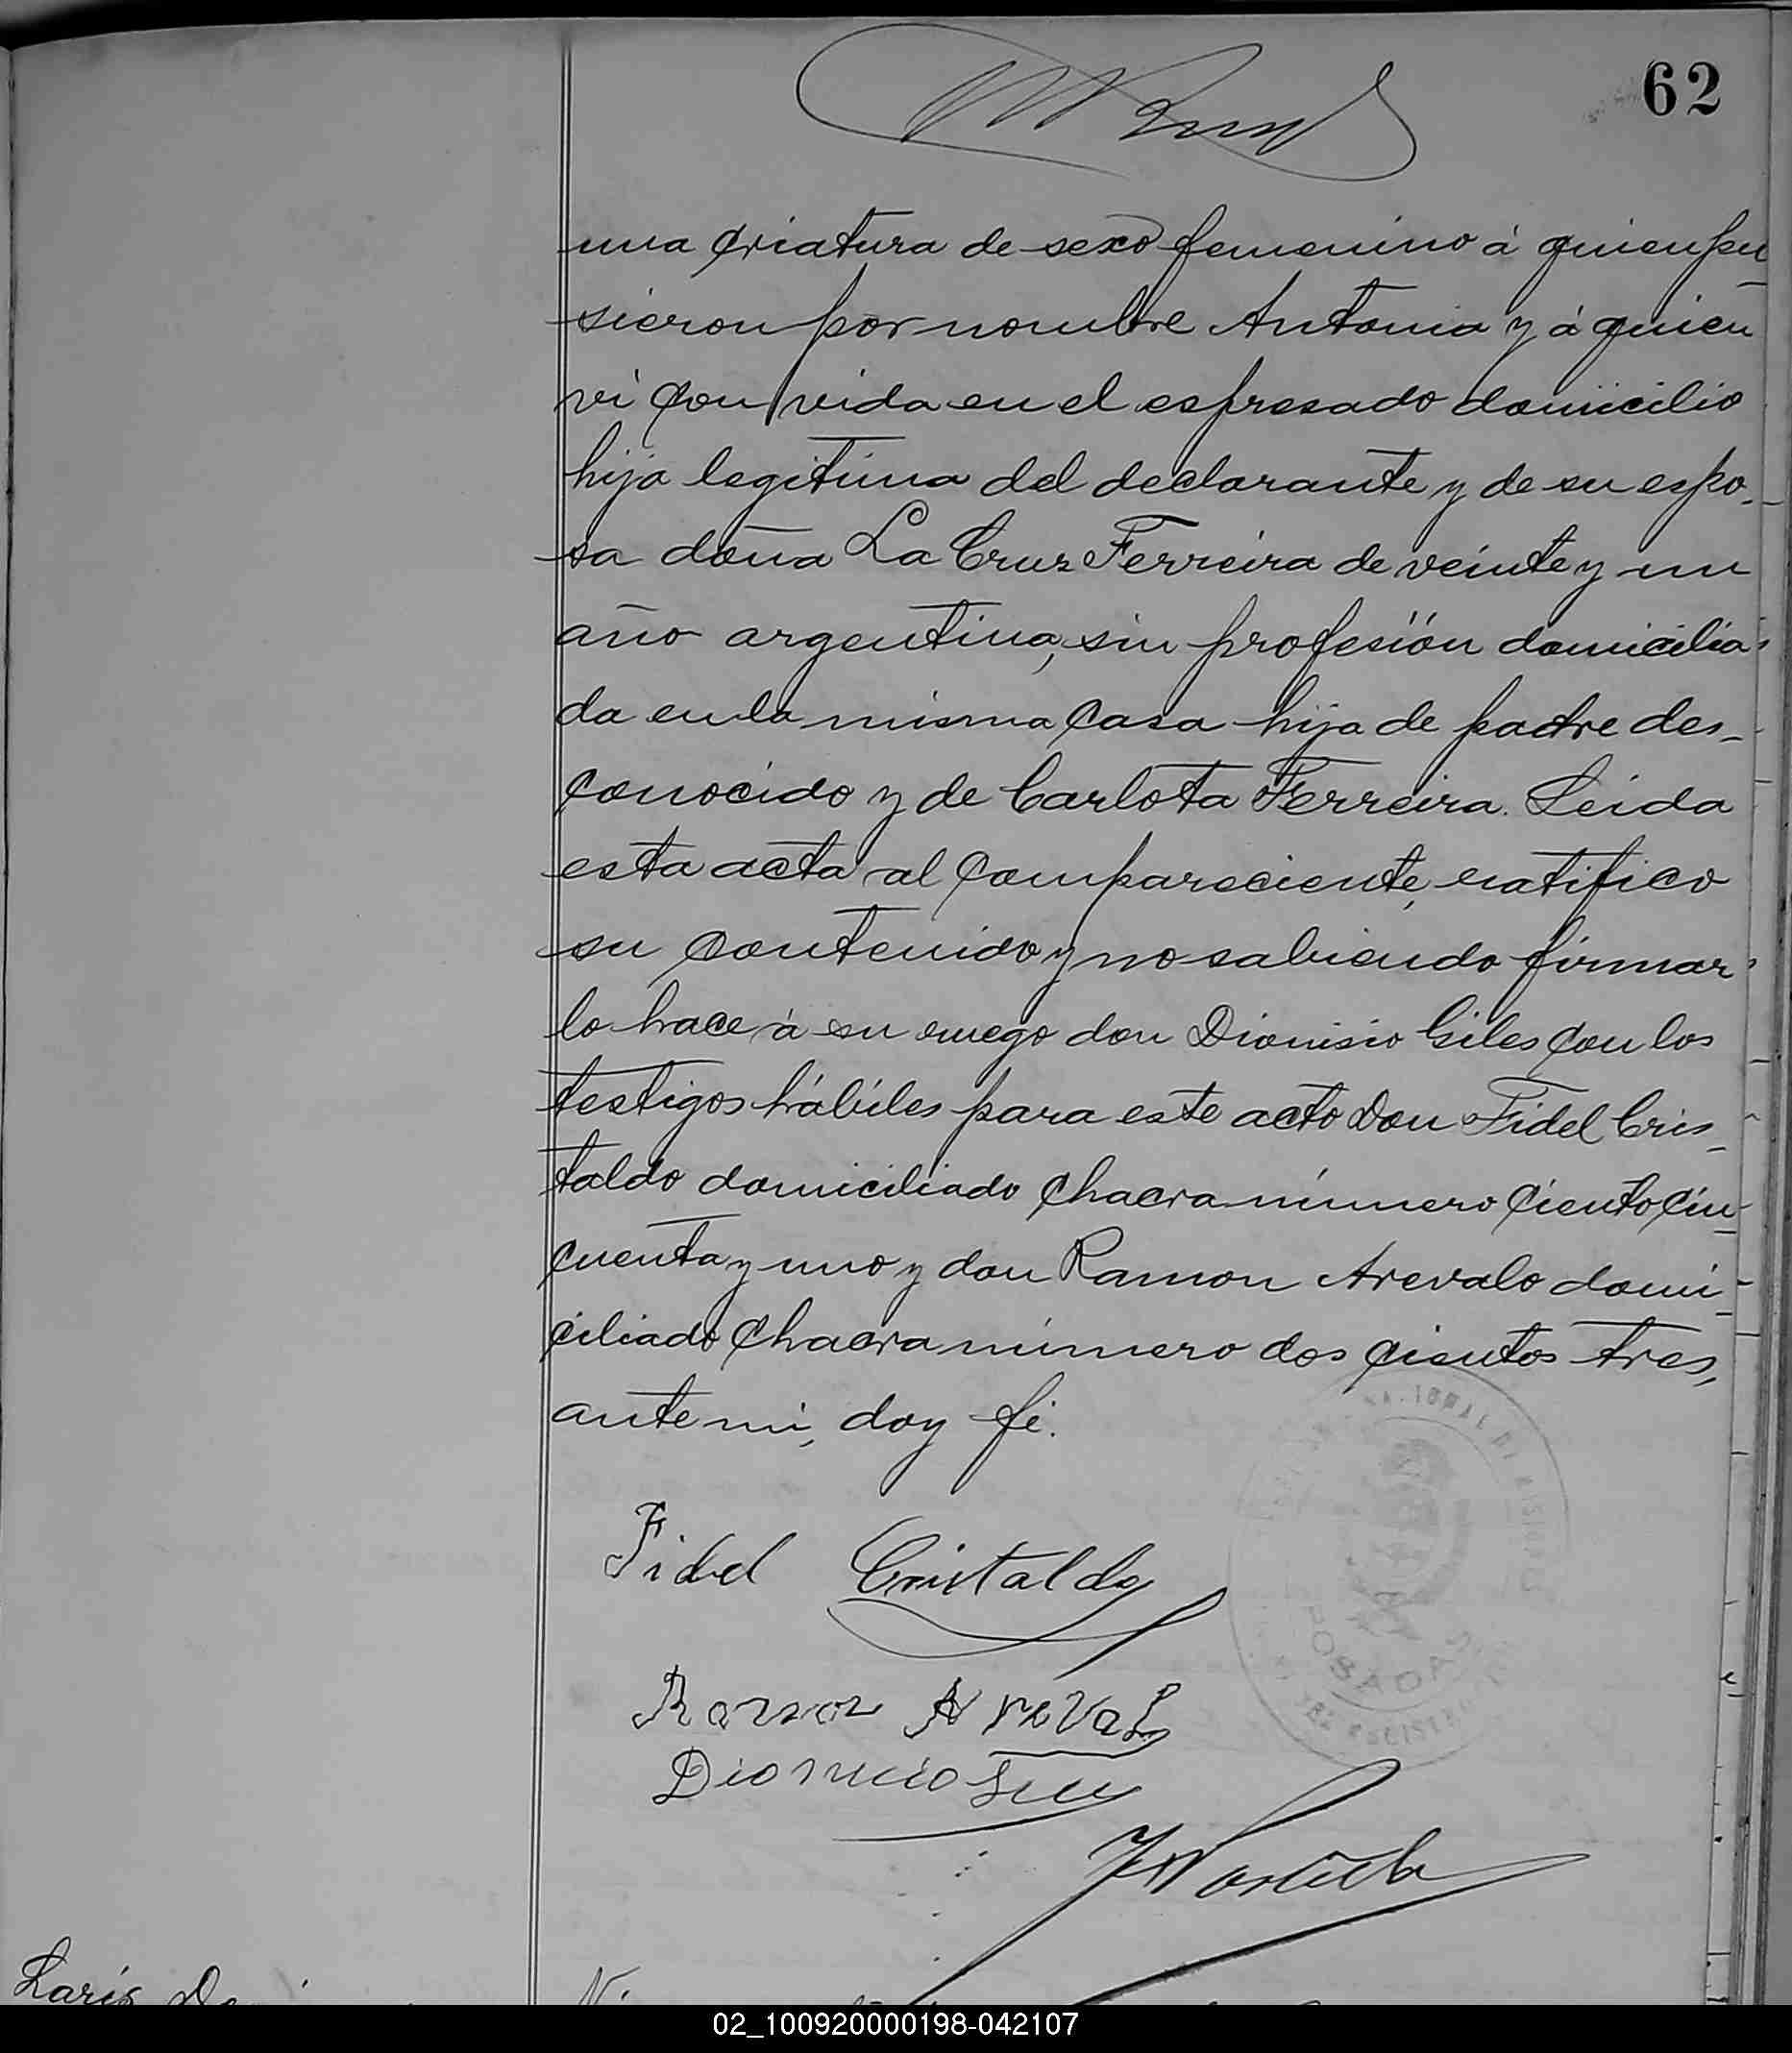 62
una criatura de sexo femenino á quien pu
sieron por nombre Antonia y á quien
vi con vida en el espresado domicilio
hija legitima del declarante y de su espo-
sa doña La Cruz Ferreira de veinte y un
año argentina, sin profesión domicilia-
da en la misma casa hija de padre des-
conocido y de Carlota Ferreira. Leida
esta acta al compareciente, ratifico
su contenido y no sabiendo firmar
lo hace á su ruego don Dionisio Giles con los
testigos hábiles para este acto Don Fidel Cris-
taldo domiciliado chacra número ciento cin-
cuenta y uno y don Ramon Arevalo domi-
ciliado chacra número dos cientos tres,
ante mi, doy fé.
Fidel Cristaldo
Ramon Arevalo
Dionicio
POSADAS
02_100920000198-042107